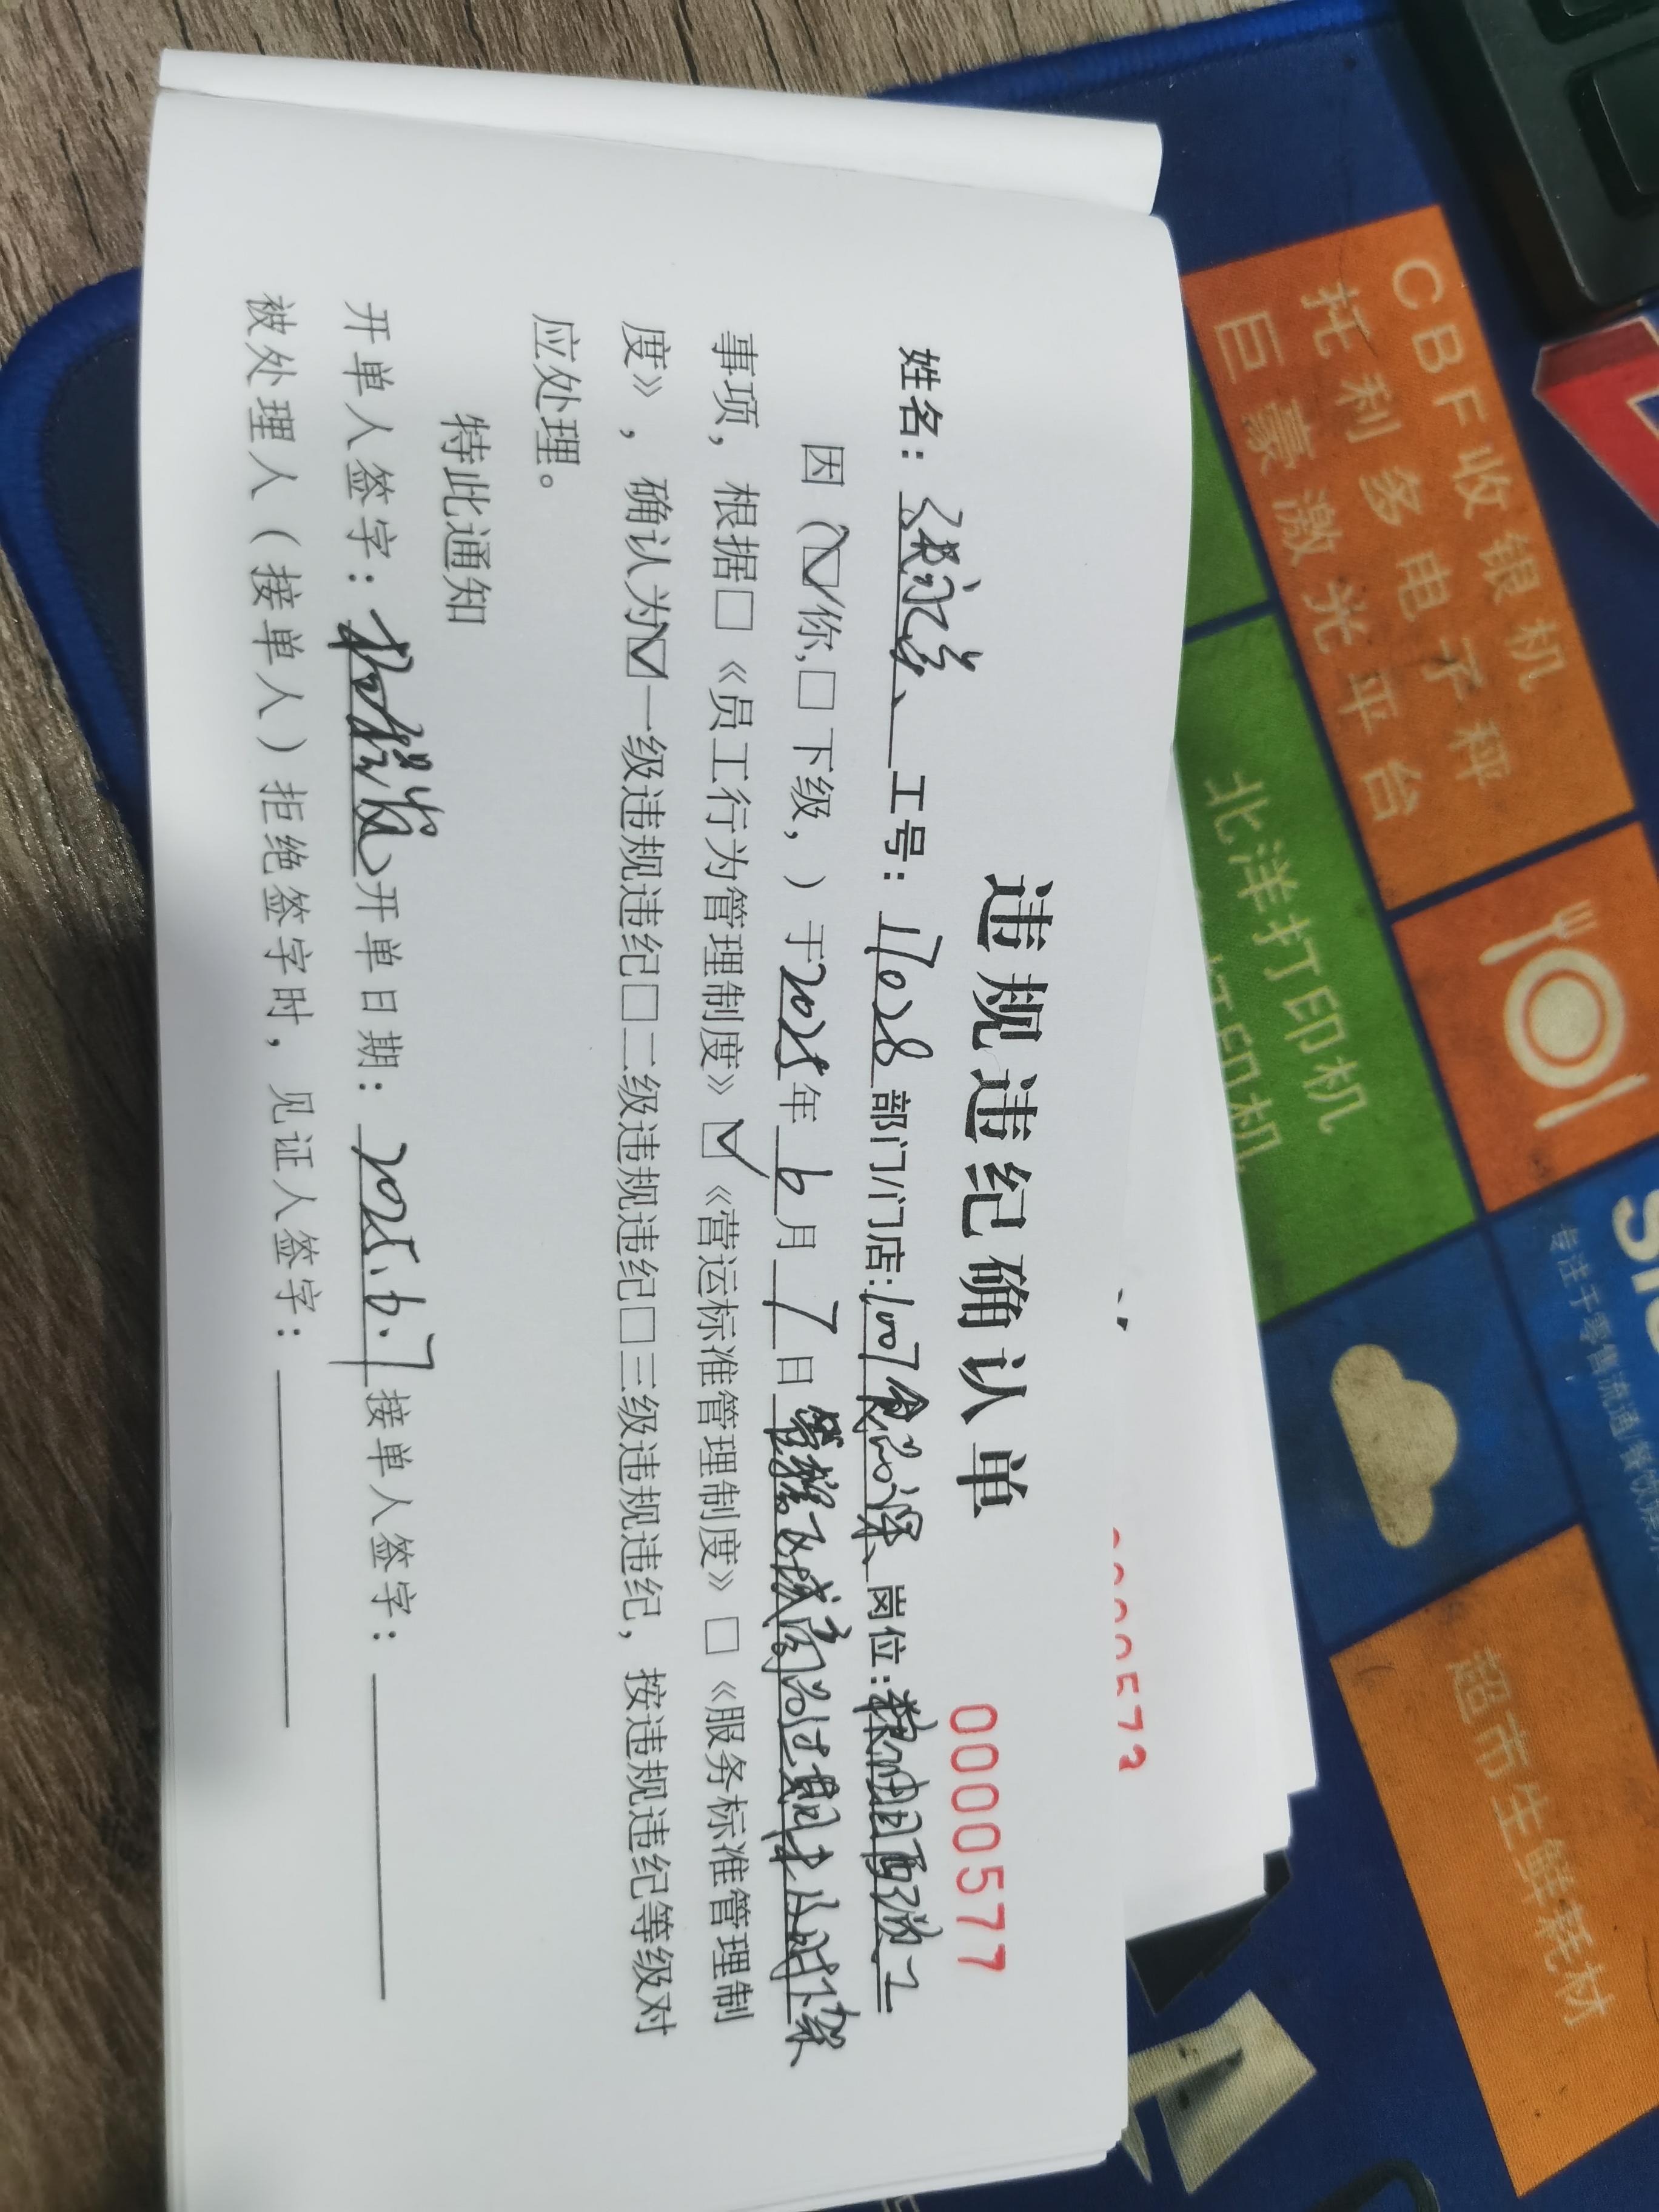 违规违纪确认单
0000577
姓名： 工号：17028 部门/门店:1007食品课 岗位:粮油配激工
因（☑你,□下级，）于2025年6月7日 荣耀飞城商品过期未及时下架
事项，根据□《员工行为管理制度》☑《营运标准管理制度》□《服务标准管理制
度》，确认为☑一级违规违纪□二级违规违纪□三级违规违纪，按违规违纪等级对
应处理。
特此通知
开单人签字： 开单日期：2025.6.7 接单人签字：
被处理人（接单人）拒绝签字时，见证人签字：
CBF收银机
托利多电子秤
巨豪激光平台
北洋打印机
打印机
专注于零售流通/餐饮
超市生鲜耗材